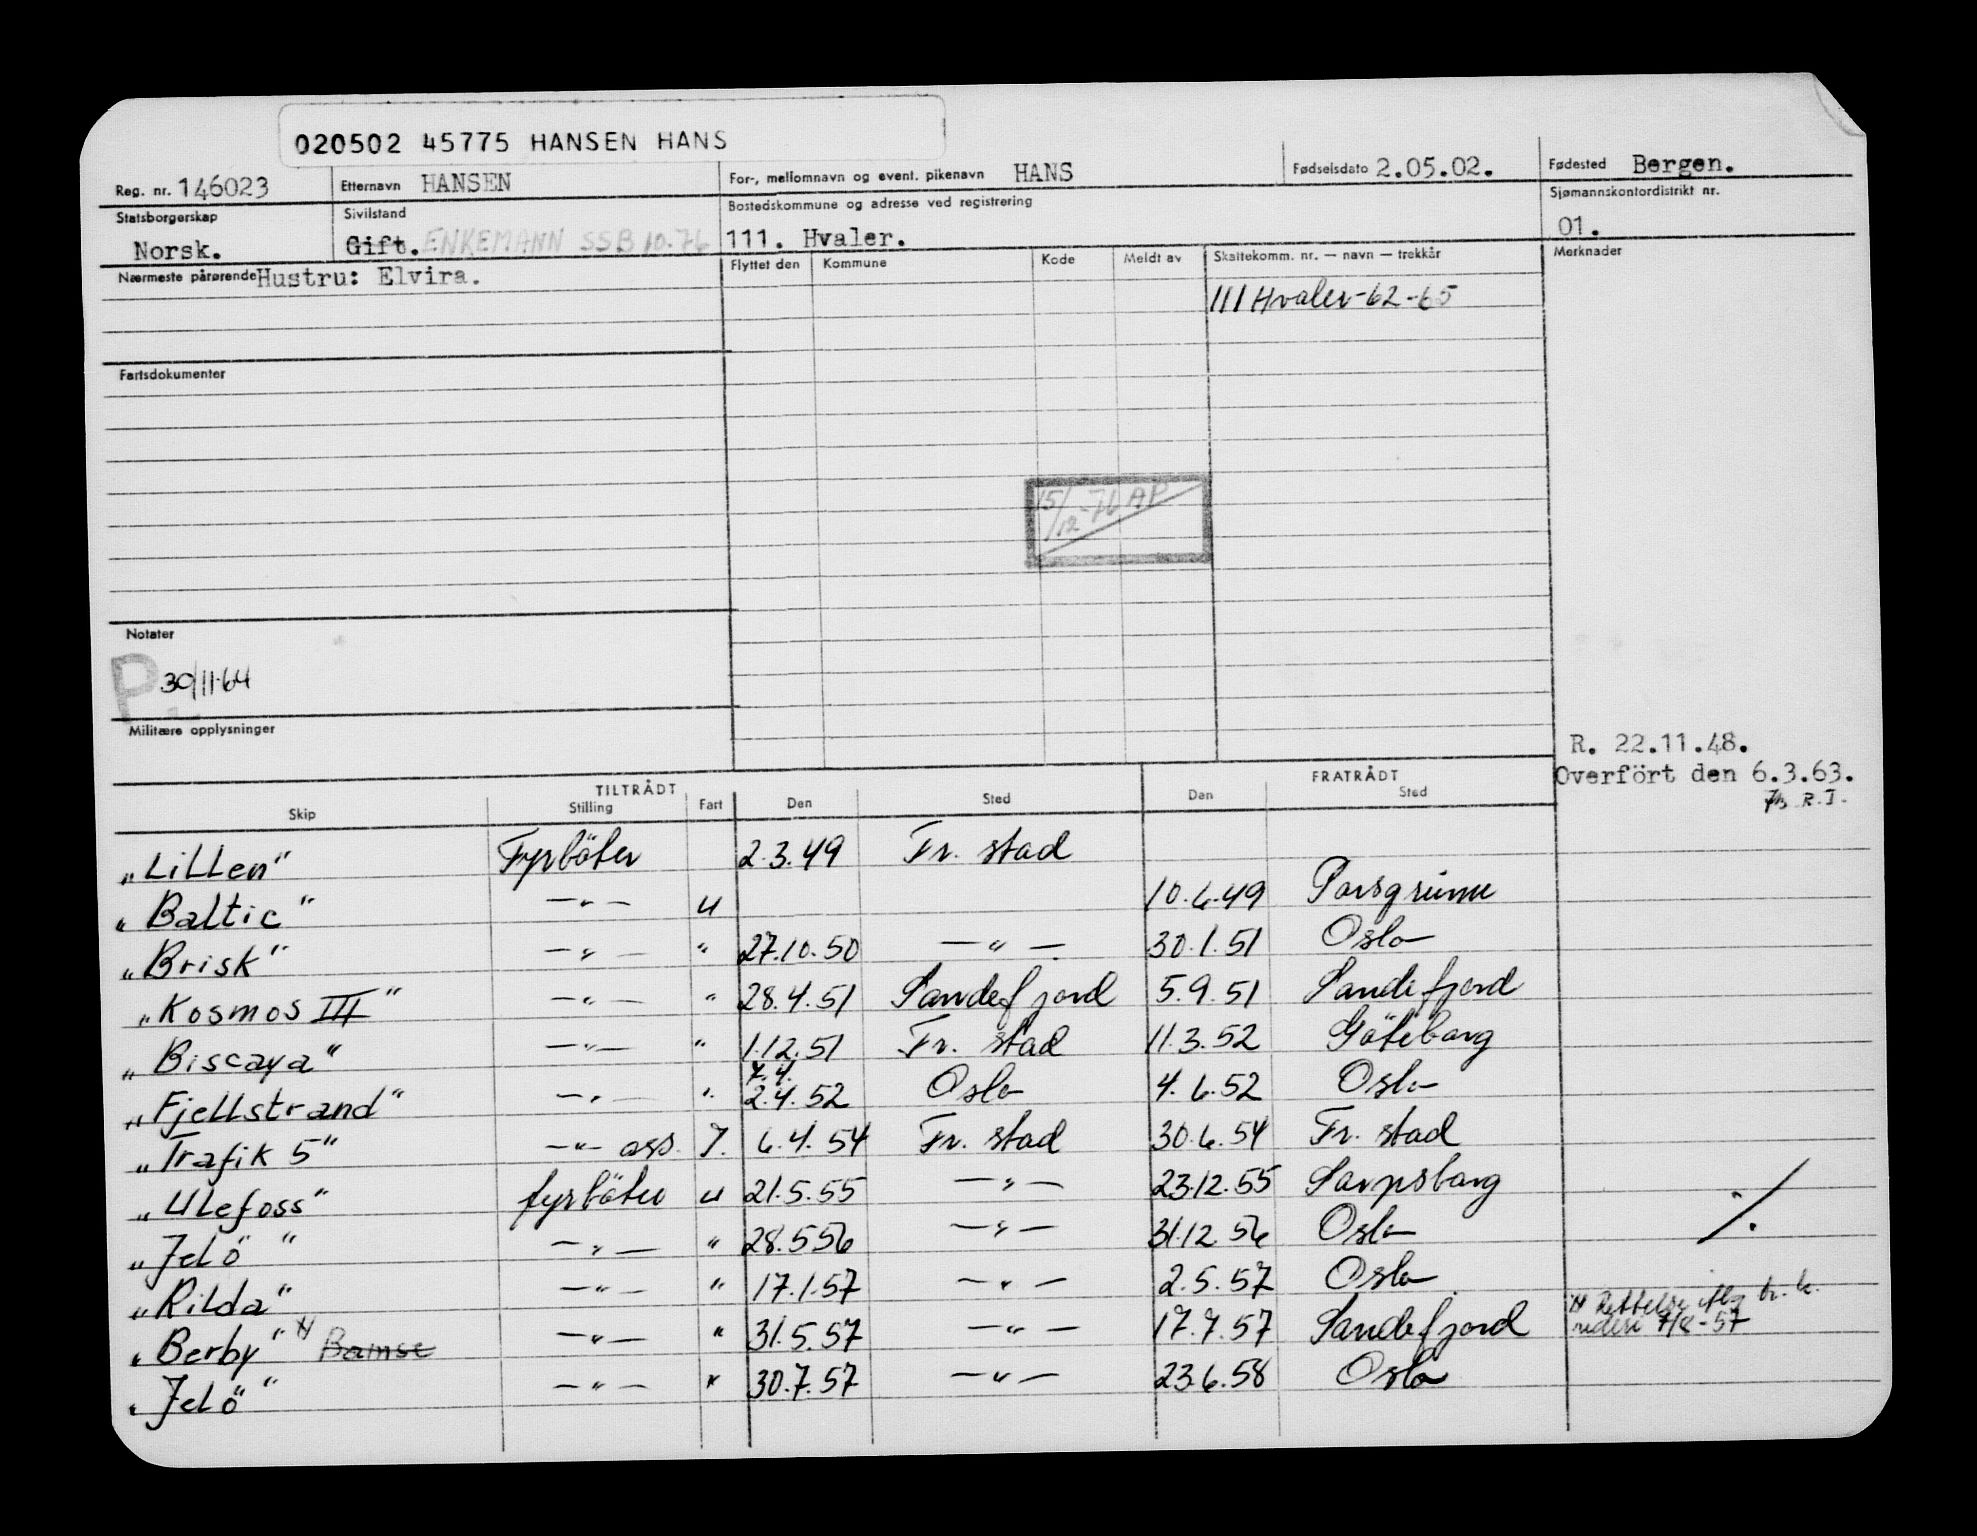 020502 45775 HANSEN HANS
Reg. nr. 146023 Etternavn HANSEN For-, mellomnavn og event. pikenavn HANS Fødselsdato 2.05.02. Fødested Bergen.
Statsborgerskap Sivilstand Bostedskommune og adresse ved registrering Sjømannskontordistrikt nr.
Norsk. Gift. ENKEMANN SSB 10-76 111. Hvaler. 01.
Nærmeste pårørende Hustru: Elvira. Flyttet den Kommune Kode Meldt av Skattekomm. nr. — navn — trekkår Merknader
111 Hvaler-62-65
Fartsdokumenter
15/12-76 AP
Notater
P 30/11-64
Militære opplysninger
R. 22.11.48.
Overfört den 6.3.63.
R.I.
TILTRÅDT FRATRÅDT
Skip Stilling Fart Den Sted Den Sted
"Lillen" Fyrböter 2.3.49 Fr. stad
"Baltic" —"— u 10.6.49 Porsgrunn
"Brisk" —"— " 27.10.50 —"— 30.1.51 Oslo
"Kosmos III" —"— " 28.4.51 Sandefjord 5.9.51 Sandefjord
"Biscaya" —"— " 1.12.51 Fr. stad 11.3.52 Göteborg
7.4.
"Fjellstrand" —"— " 2.4.52 Oslo 4.6.52 Oslo
"Trafik 5" —"— ass. I. 6.4.54 Fr. stad 30.6.54 Fr. stad
"Ulefoss" fyrböter u 21.5.55 —"— 23.12.55 Sarpsborg
"Jelö" —"— " 28.5.56 —"— 31.12.56 Oslo
"Rilda" —"— " 17.1.57 —"— 2.5.57 Oslo
"Berby" x) Bamse —"— " 31.5.57 —"— 17.7.57 Sandefjord x) Rettelse iflg br. fr.
rederi 7/8-57
"Jelö" —"— " 30.7.57 —"— 23.6.58 Oslo